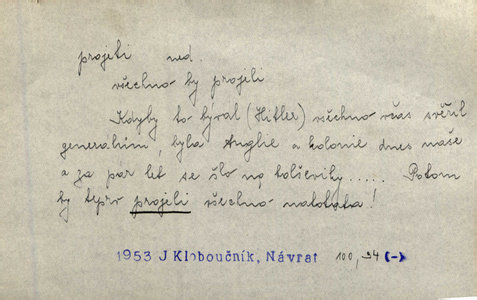 projeti ned.
všechno by projeli
Kdyby to býval (Hitler) všechno včas svěřil
generálům, byla Anglie a kolonie dnes naše
a za par let se šlo na bolševiky..... Potom
by teprv projeli všechno natotata!
1953 J Kloboučník, Návrat 100,94 (-)